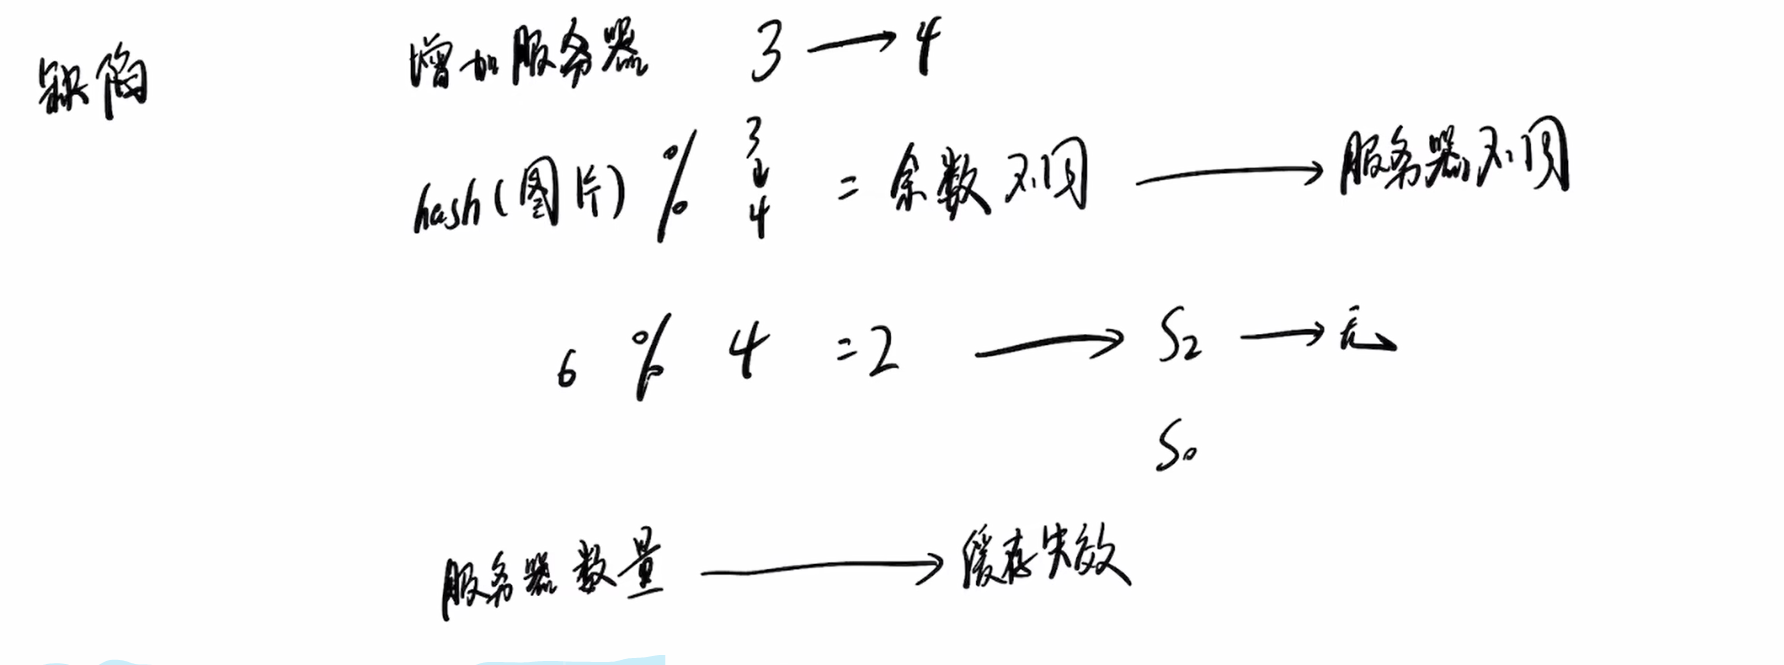 缺陷
增加服务器 3 → 4
hash(图片) % 3 ↓ 4 = 余数不同 → 服务器不同
6 % 4 = 2 → S2 → 无
S0
服务器数量 → 缓存失效